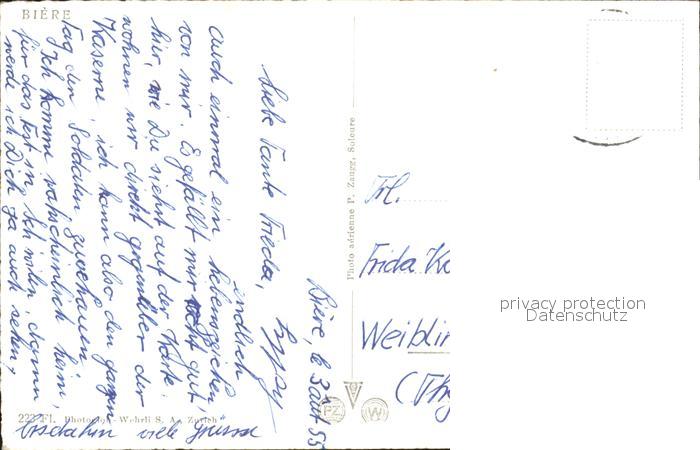 BIÈRE
Bière, le 3 août 55
Liebe Tante Frieda,
endlich
auch einmal ein Lebenszeichen
von mir. Es gefällt mir gut
hier, wie Du siehst auf der Karte
wohnen wir direkt gegenüber der
Kaserne, ich kann also den ganzen
Tag den Soldaten zuschauen.
Ich komme wahrscheinlich heim,
für das Fest in, dann
werde ich Dich ja auch sehen,
bis dahin viele Grüsse
Photo aérienne P. Zaugg, Soleure
Frl.
Frida
Weiblin
(Thg
PZ
W
Photogr. - Wehrli S. A., Zurich
privacy protection
Datenschutz